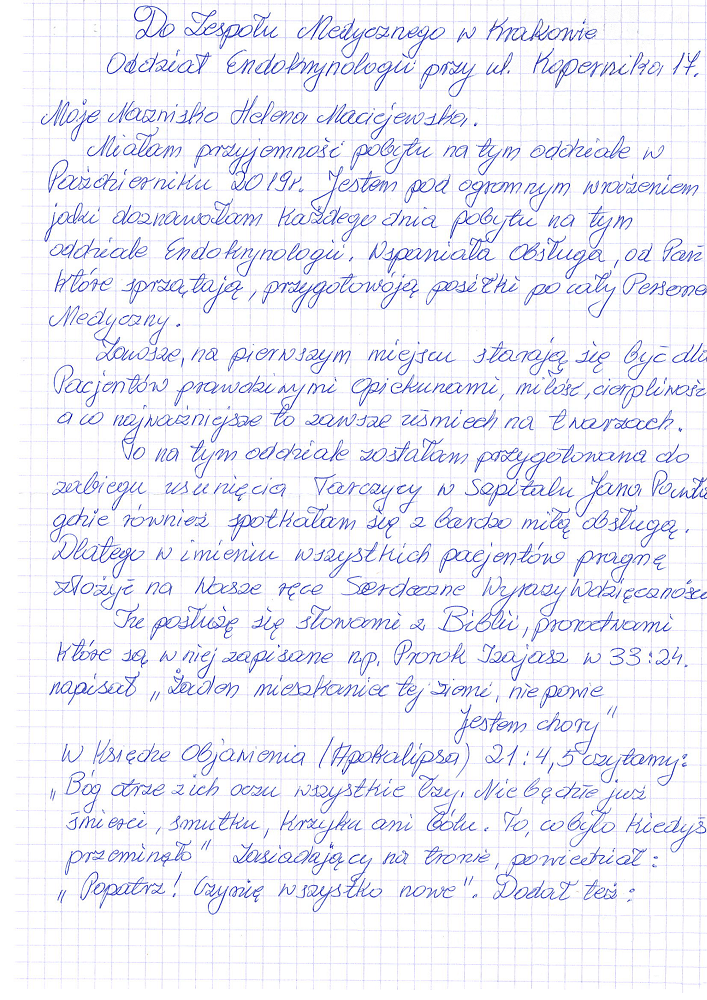 Do Zespołu Medycznego w Krakowie
Oddział Endokrynologii przy ul. Kopernika 17.
Moje Nazwisko Helena Maciejewska.
Miałam przyjemność pobytu na tym oddziale w
Październiku 2019r. Jestem pod ogromnym wrażeniem
jaki doznawałam każdego dnia pobytu na tym
oddziale Endokrynologii. Wspaniała Obsługa, od Pań
które sprzątają, przygotowują posiłki po cały Persone
Medyczny.
Zawsze, na pierwszym miejscu starają się być dla
Pacjentów prawdziwymi Opiekunami, miłość, cierpliwość
a co najważniejsze to zawsze uśmiech na twarzach.
To na tym oddziale zostałam przygotowana do
zabiegu usunięcia Tarczycy w Szpitalu Jana Pawła
gdzie również spotkałam się z bardzo miłą obsługą.
Dlatego w imieniu wszystkich pacjentów pragnę
złożyć na Wasze ręce Serdeczne Wyrazy Wdzięczności
Tu posłużę się słowami z Biblii, proroctwami
które są w niej zapisane np. Prorok Izajasz w 33:24.
napisał „Żaden mieszkaniec tej ziemi, nie powie
Jestem chory"
W Księdze Objawienia (Apokalipsa) 21:4,5 czytamy:
„Bóg otrze z ich oczu wszystkie łzy. Nie będzie już
śmierci, smutku, krzyku ani bólu. To, co było kiedyś
przeminęło" Zasiadający na tronie, powiedział:
„Popatrz! Czynię wszystko nowe". Dodał też: